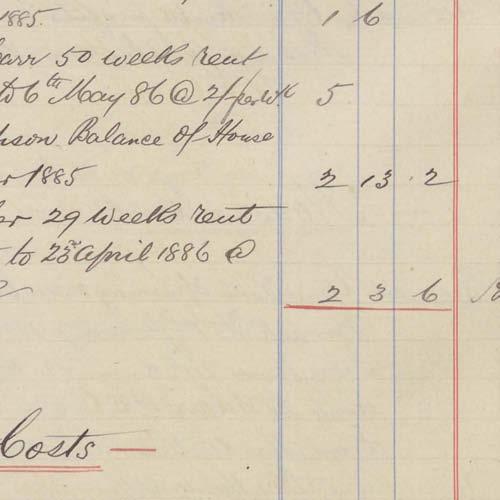 1885. 1 6
arr 50 weeks rent
to 6th May 86 @ 2/ per wk 5
son Balance of House
1885 2 13 . 2
er 29 weeks rent
to 23rd April 1886 @
2 3 6
Costs —